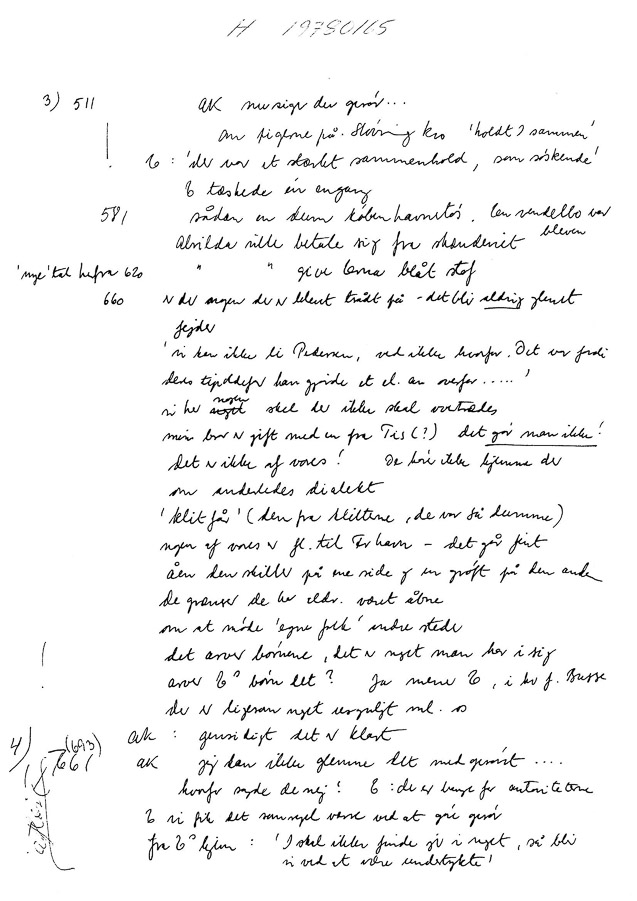 H 19780165
3) 511 AK nu siger du gerór...
om pigerne på Støvring kro 'holdt I sammen'
E : 'der var et stærkt sammenhold, som søskende'
E tæskede én engang
581 sådan en dum københavnertøs. var bleven
Alvilda ville betale sig fra skænderiet
'nye' tal herfra 620 " " give Erna blåt stof
660 er der nogen der er blevet trådt på - det bli aldrig glemt
fejder
'vi kan ikke li Pedersen, ved ikke hvorfor. Det var fordi
deres tipoldefar han gjorde et el. an overfor .....'
vi har noget nogen skel der ikke skal overtrædes
min bror er gift med en fra Tis(?) det gør man ikke!
det er ikke af vores! De hører ikke hjemme der
om anderledes dialekt
'klitfår' (dem fra klitterne, de var så dumme)
nogen af vores er fl. til Frhavn - det går fint
åen den skiller på ene side og en grøft på den anden
de grænser de har aldr. været åbne
om at møde 'egne folk' andre steder
det arver børnene, det er noget man har i sig
arver E's børn det? Ja mener E, i hv f. Basse
der er ligesom noget usynligt ml. os
4) (693) 661 AK : gensidigt det er klart
AK jeg kan ikke glemme det med gerórt ....
hvorfor sagde de nej! E : de er bange for autoriteterne
E vi fik det somregel værre ved at gøre gerór
fra E's hjem : 'I skal ikke finde jer i noget, så bli
vi ved at være undertrykte!'